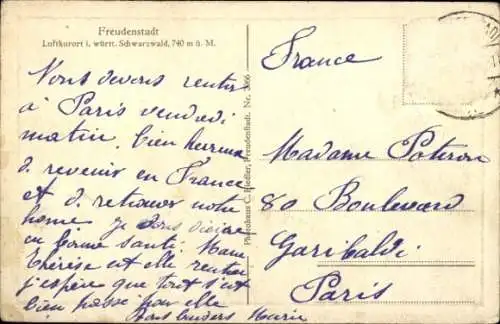 Freudenstadt
Luftkurort i. württ. Schwarzwald, 740 m ü. M.
Nous devons rentrer
à Paris vendredi
matin, bien heureux
de revenir en France
et de retrouver notre
home je vous désire
en bonne santé. Marie
Thérèse est elle rentrée
j'espère que tout s'est
bien passé par elle
Bons baisers Marie
Photohaus C. Riedler, Freudenstadt. Nr. 2066
France
Madame Poteron
80 Boulevard
Garibaldi
Paris